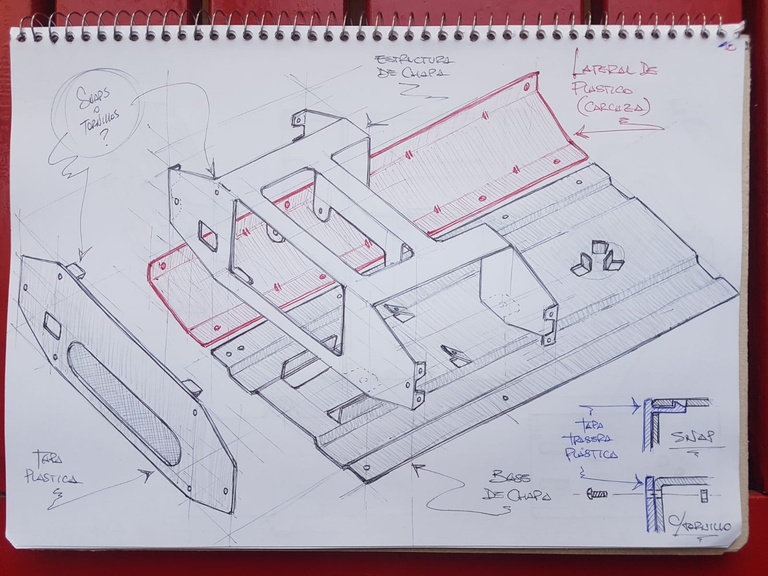 ESTRUCTURA
DE CHAPA
LATERAL DE
PLASTICO
(CARCAZA)
SNAPS
O
TORNILLOS
?
TAPA
PLASTICA
BASE
DE CHAPA
TAPA
TRASERA
PLASTICA
SNAP
C/TORNILLO